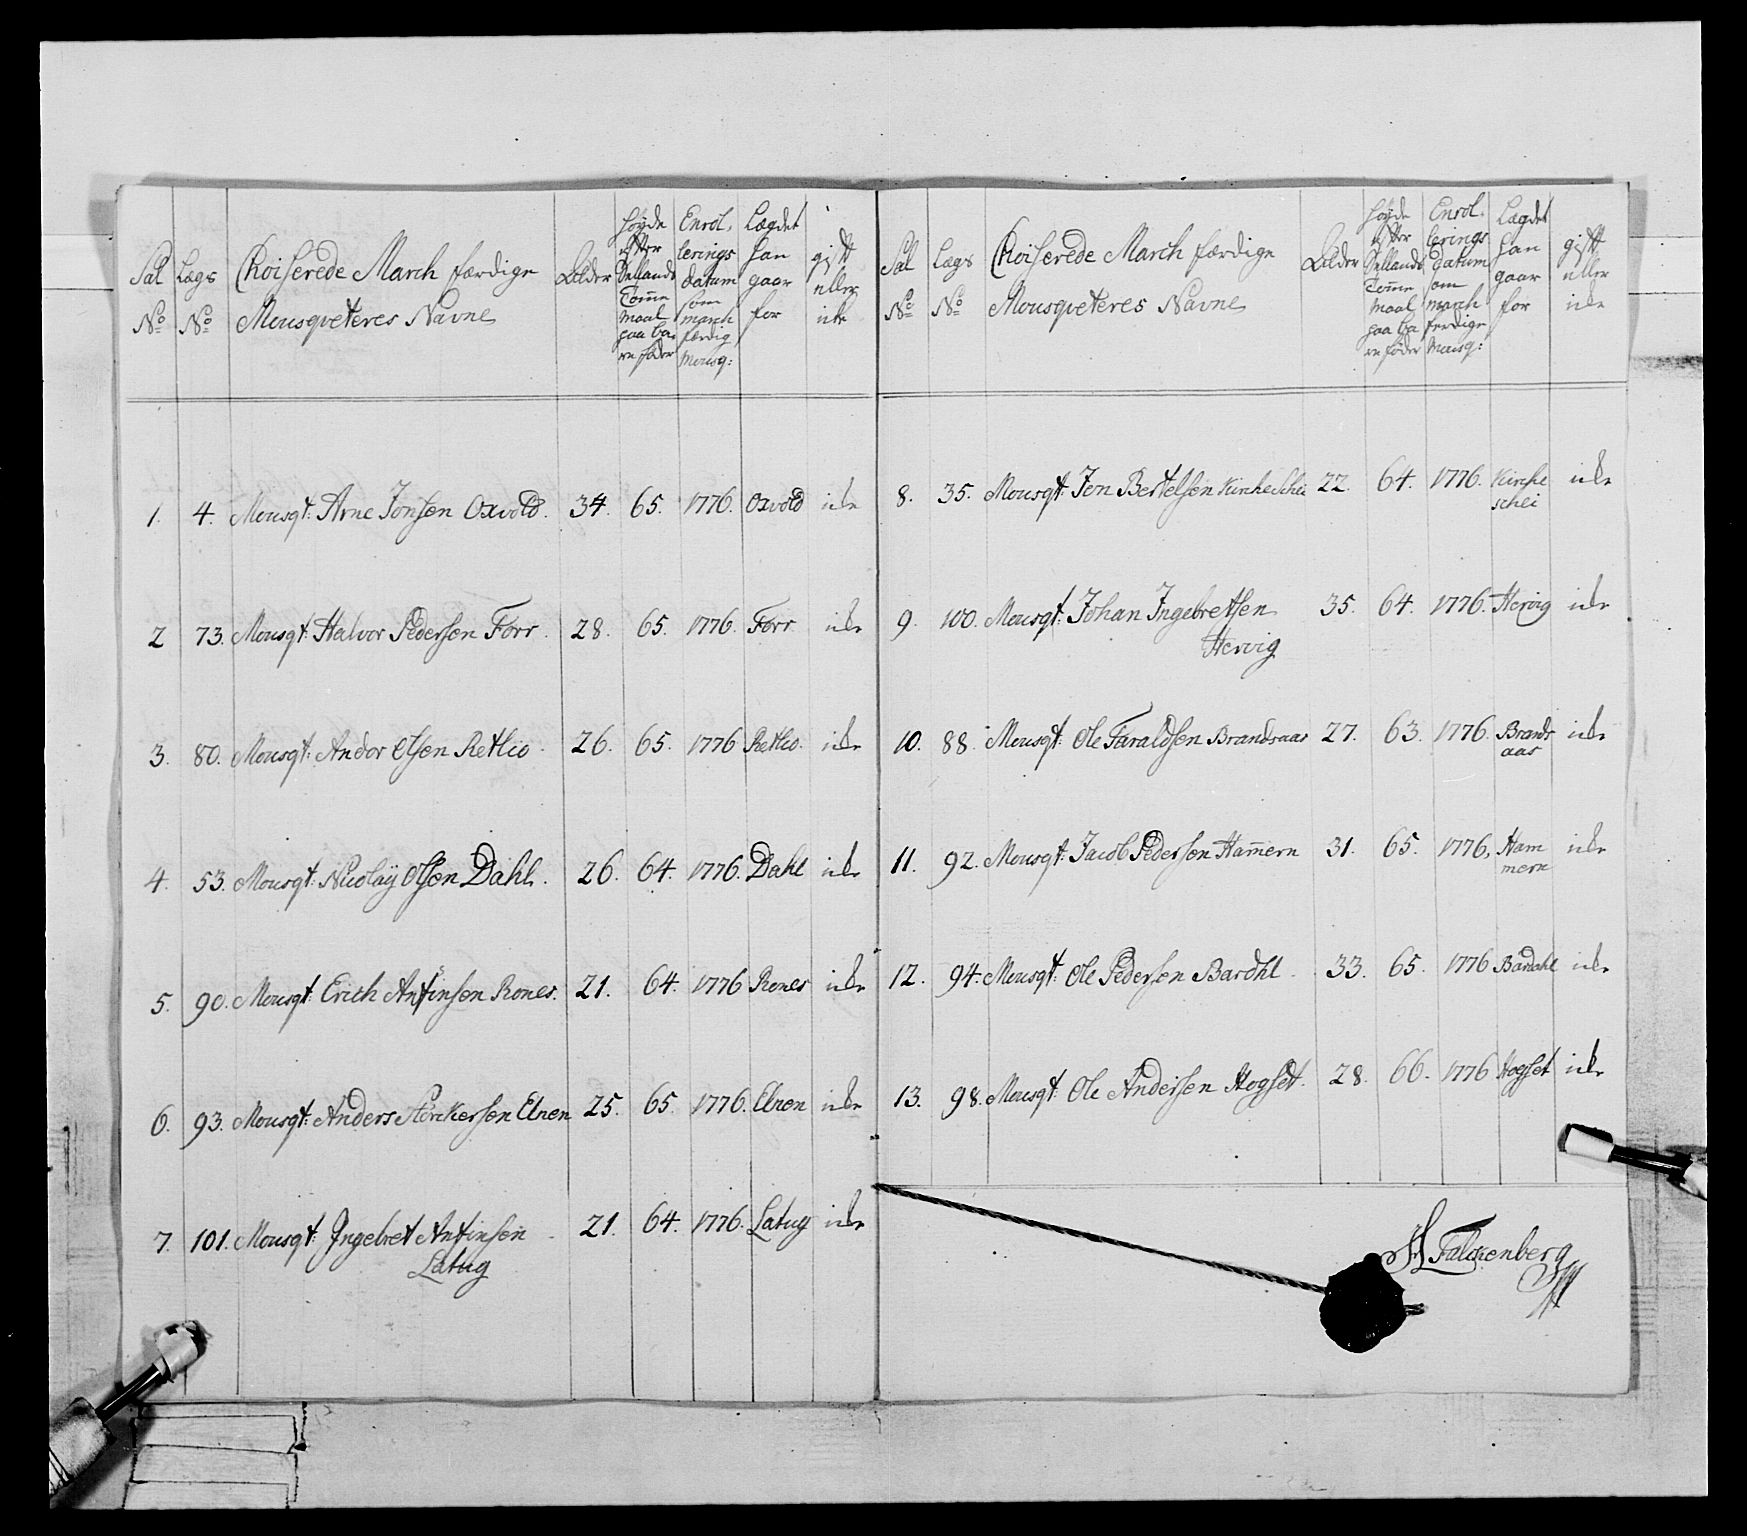 Sal No
Lægs No
Choiserede March færdige
Mousqveteres Navne
Alder
Høyde
efter
Sellands
Tomme
maal
paa ba
re føder
Enrol
lerings
datum
som
march
færdig
Mousq:
Lægdet
han
gaar
for
gift
eller
icke
1. 4. Mousqt: Arne Jonsen Oxvold. 34. 65. 1776. Oxvold icke
2 73. Mousqt: Halvor Pedersen Forr. 28. 65. 1776. Forr icke
3. 80. Mousqt: Andor Olsen Retlio. 26. 65. 1776 Retlio. icke
4. 53. Mousqt: Nicolaÿ Olsen Dahl. 26. 64. 1776. Dahl icke
5. 90. Mousqt: Erich Antinsen Rones. 21. 64. 1776 Rones icke
6. 93. Mousqt: Anders Størckersen Elnen 25. 65. 1776. Elnen icke
7. 101. Mousqt: Jngebret Antinsen 21. 64. 1776. Latug icke
Latug
Sal No
Lægs No
Choiserede March færdige
Mousqveteres Navne
Alder
Høyde
efter
Sellands
Tomme
maal
paa ba
re føder
Enrol.
lerings
datum
som
march
ferdige
Mousq:
Lægdet
han
gaar
for
gift
eller
icke
8. 35. Mousqt: Jon Bertelsen Kircheschei 22. 64. 1776. Kirche icke
schei
9. 100. Mousqt: Johan Jngebretsen 35. 64. 1776. Hervig icke
Hervig
10. 88. Mousqt: Ole Taraldsen Brandsaas 27. 63. 1776. Brands icke
aas
11. 92. Mousqt: Jacob Pedersen Ham̄ern 31. 65. 1776. Ham icke
mern
12. 94. Mousqt: Ole Pedersen Bardhl 33. 65. 1776 Bardahl icke
13. 98. Mousqt: Ole Andersen Hogset. 28. 66. 1776 Hogset icke
Falckenberg